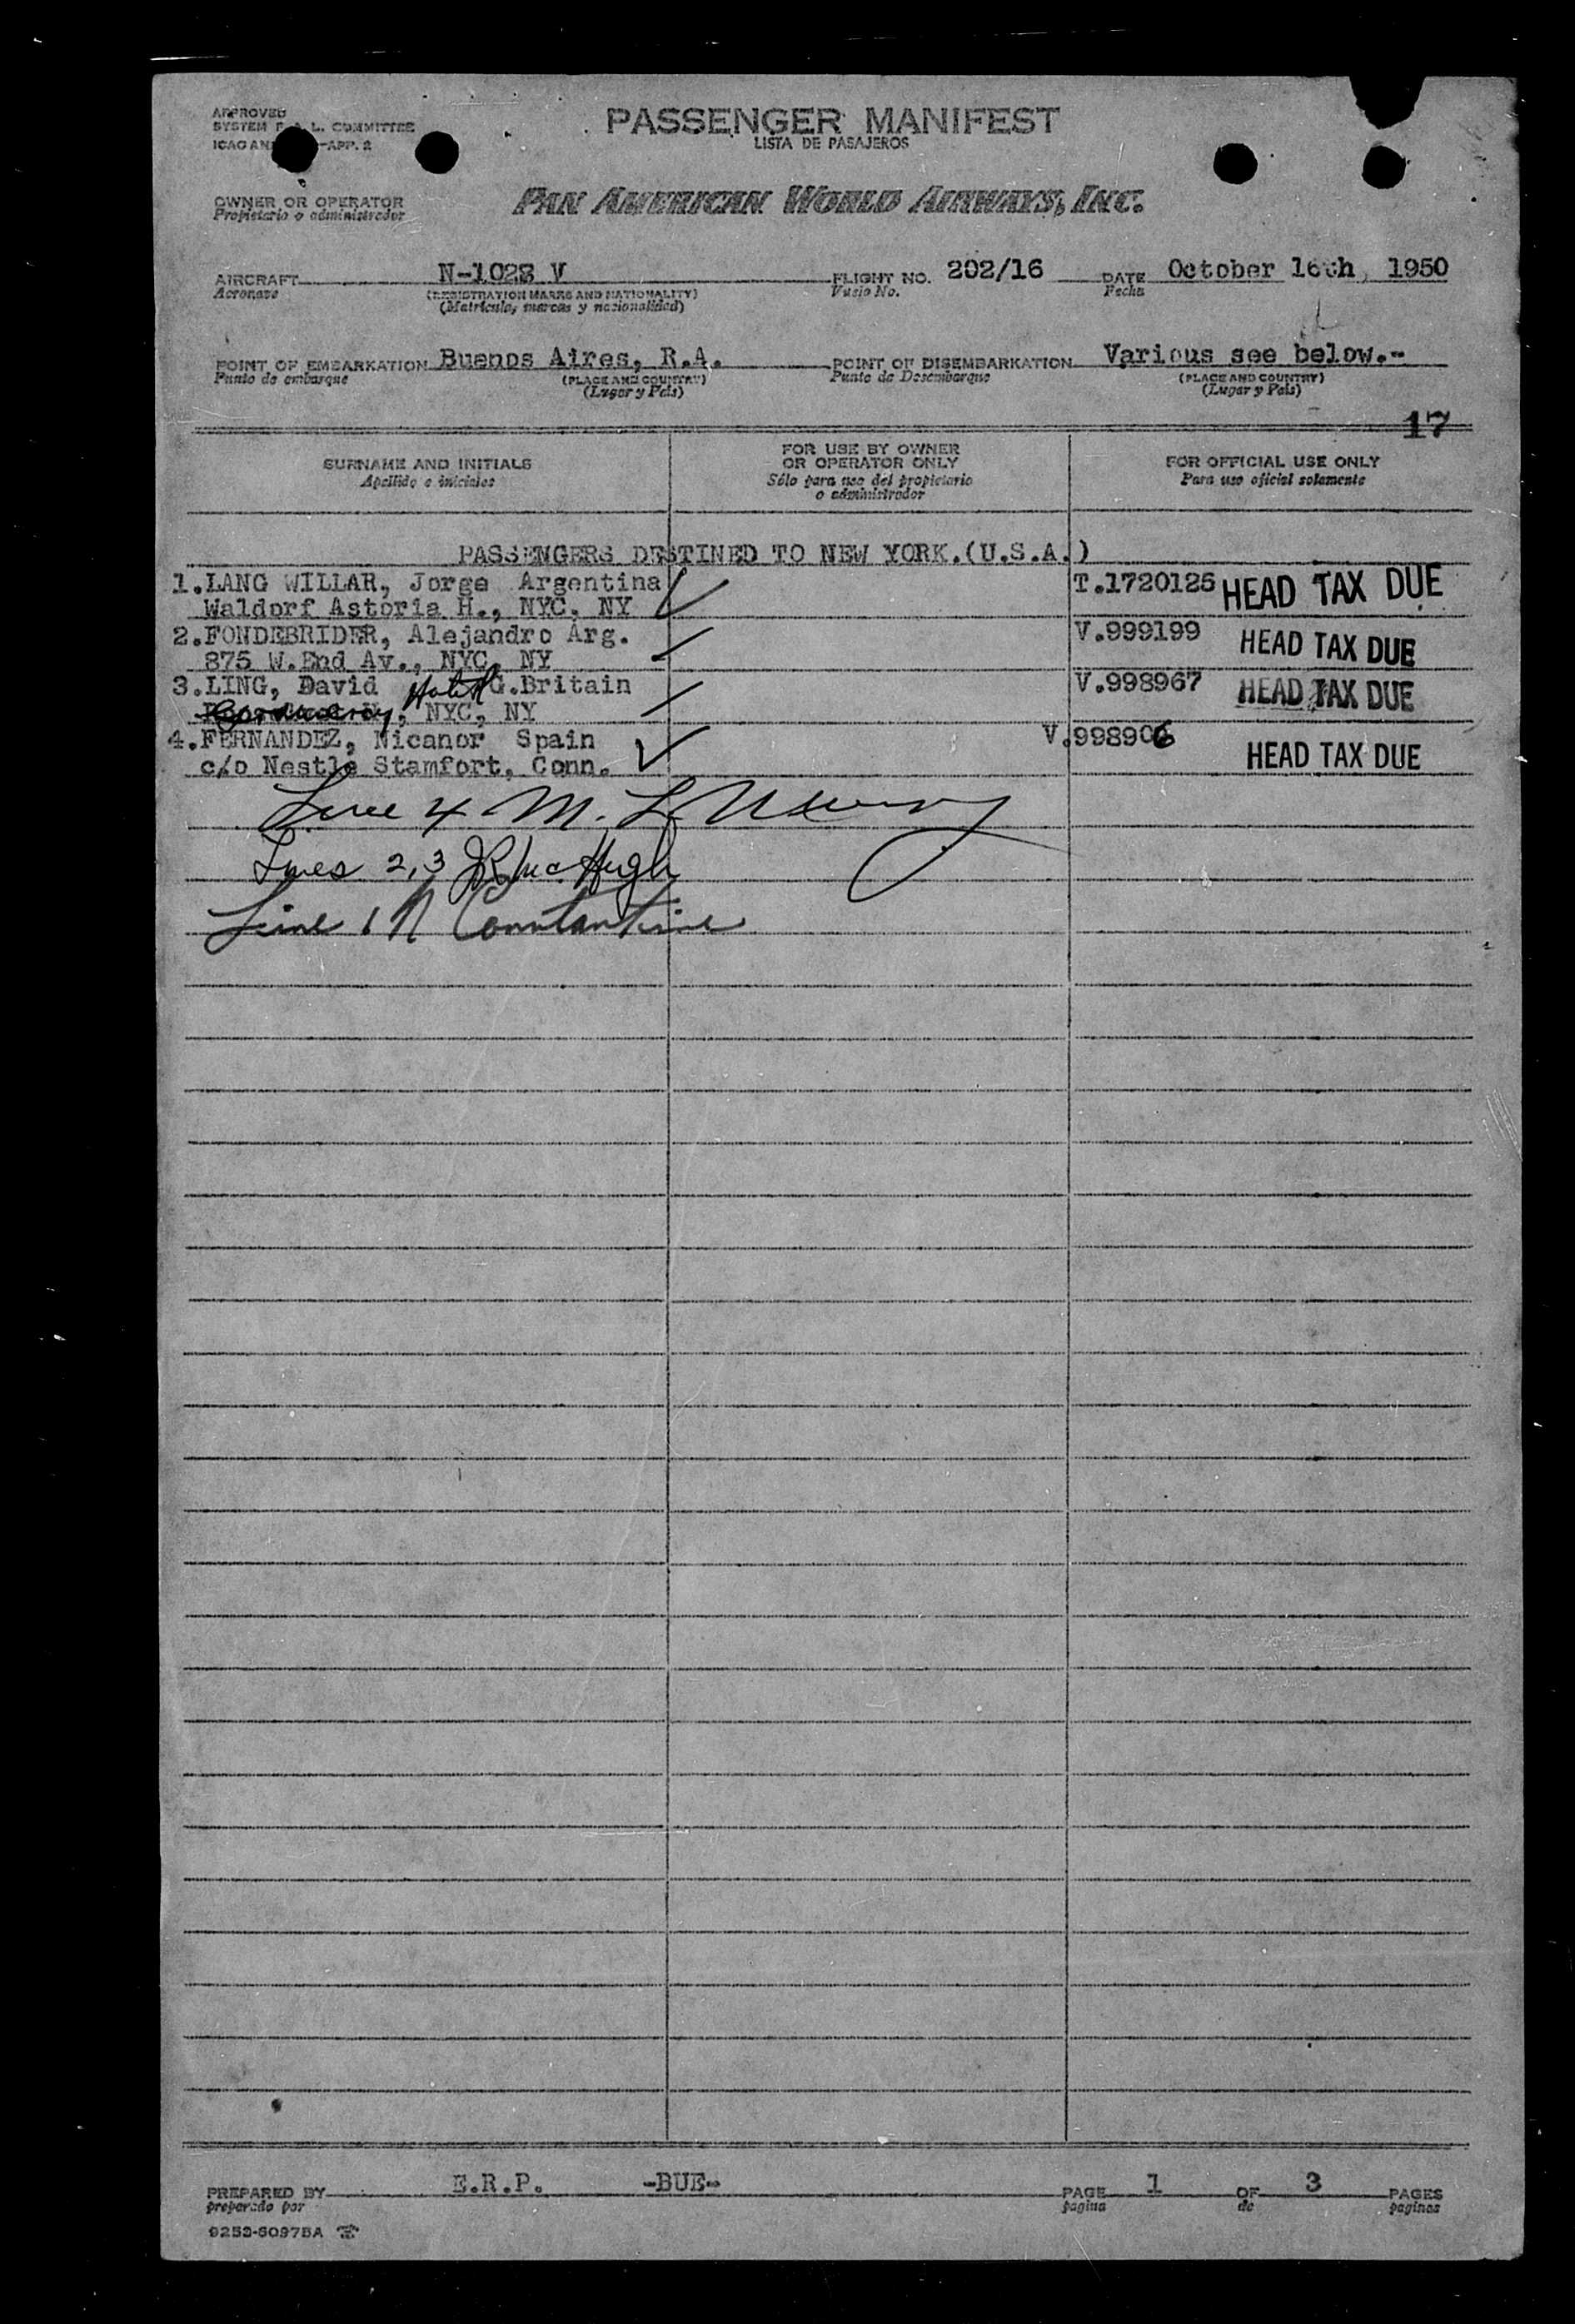 APPROVED
SYSTEM F. A. L. COMMITTEE
ICAO AN APP. 2
PASSENGER MANIFEST
LISTA DE PASAJEROS
OWNER OR OPERATOR
Propietario o administrador
PAN AMERICAN WORLD AIRWAYS, INC.
AIRCRAFT N-1028 V FLIGHT NO. 202/16 DATE October 16th, 1950
Aeronave (REGISTRATION MARKS AND NATIONALITY) Vuelo No. Fecha
(Matrícula, marcas y nacionalidad)
POINT OF EMBARKATION Buenos Aires, R.A. POINT OF DISEMBARKATION Various see below.-
Punto de embarque (PLACE AND COUNTRY) Punto de Desembarque (PLACE AND COUNTRY)
(Lugar y País) (Lugar y País)
17
SURNAME AND INITIALS
Apellido e iniciales
FOR USE BY OWNER
OR OPERATOR ONLY
Sólo para uso del propietario
o administrador
FOR OFFICIAL USE ONLY
Para uso oficial solamente
PASSENGERS DESTINED TO NEW YORK.(U.S.A.)
1.LANG WILLAR, Jorge Argentina T.1720126 HEAD TAX DUE
Waldorf Astoria H., NYC, NY
2.FONDEBRIDER, Alejandro Arg. V.999199 HEAD TAX DUE
875 W.End Av., NYC, NY
3.LING, David Hotel G.Britain V.998967 HEAD TAX DUE
, NYC, NY
4.FERNANDEZ, Nicanor Spain V.998906 HEAD TAX DUE
c/o Nestle Stamfort, Conn.
Line 4 M. L.
Lines 2,3 J R McHugh
Line 1 N Constantine
PREPARED BY E.R.P. -BUE- PAGE 1 OF 3 PAGES
preparado por pagina de paginas
9253-60975A